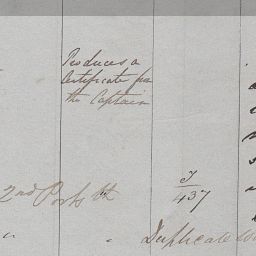 Produces a
Certificate from
the Captain
J
437
2nd Ports th
" " Duplicate